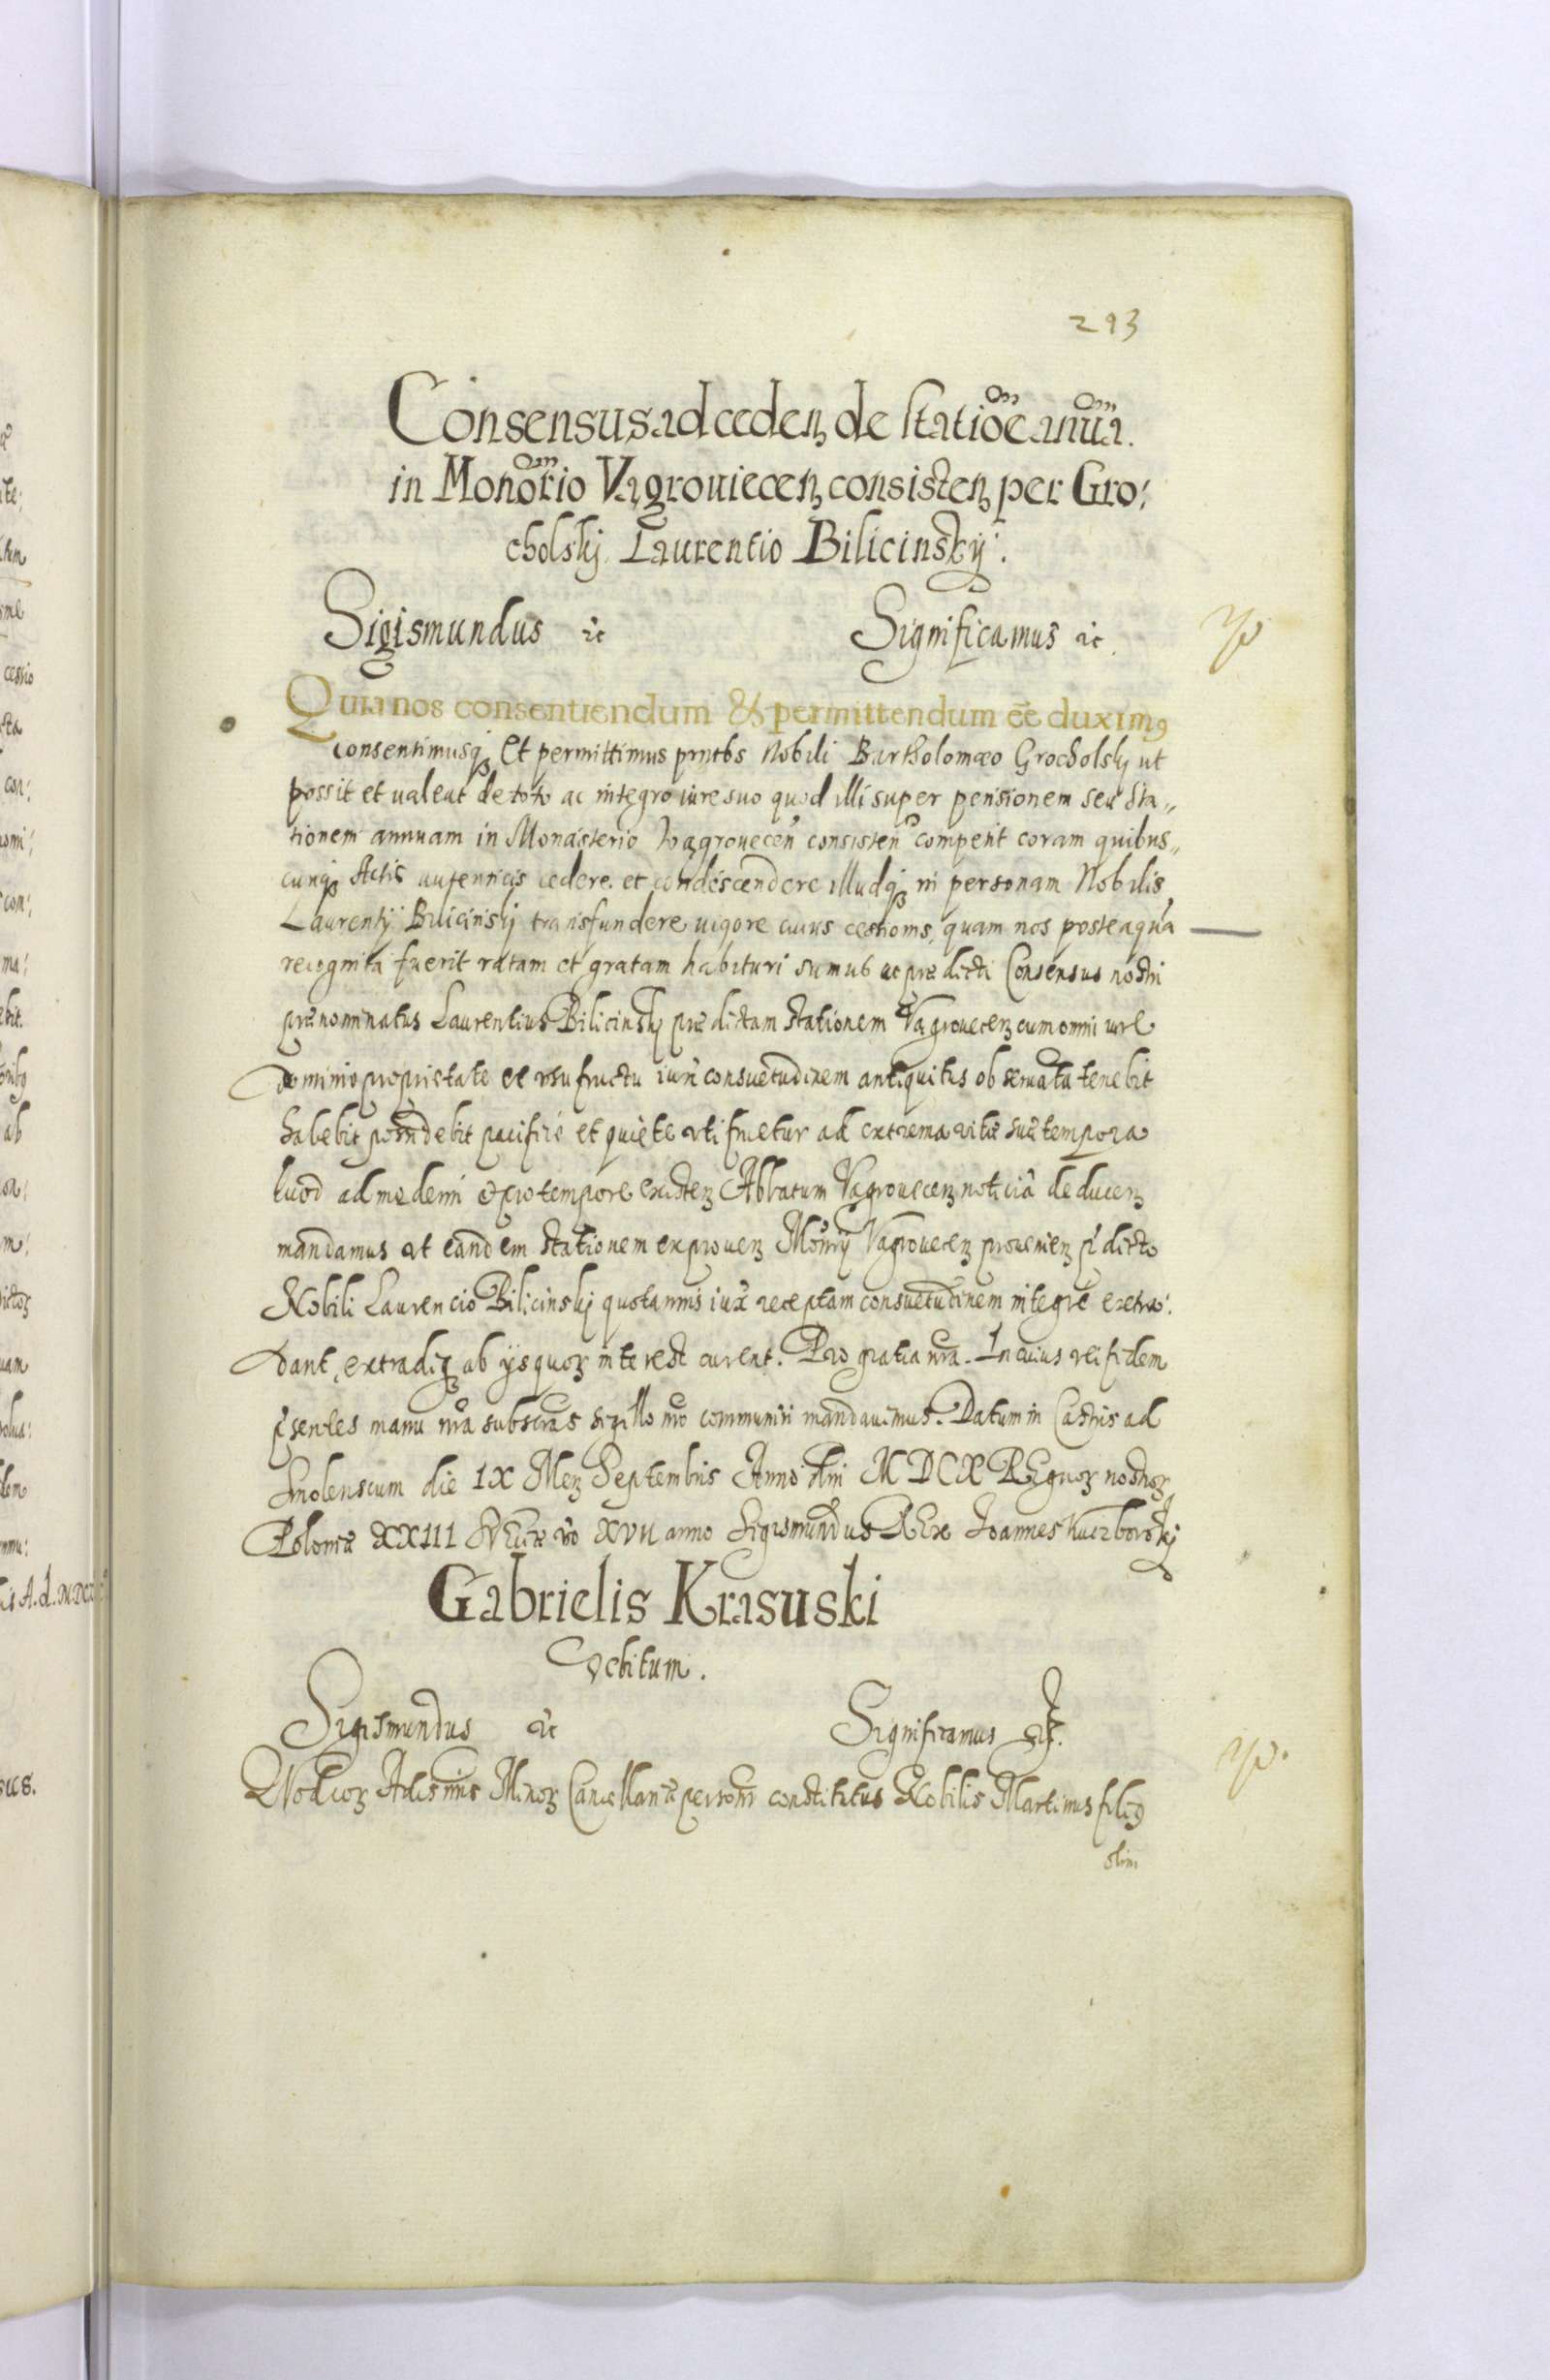 293
Consensus ad ceden de statiõe anũa.
in Monõrio Vagroviecen consisten per Gro:
cholskj Laurentio Bilicinskÿ.
Sigismundus etc Significamus etc.
Quia nos consentiendum & permittendum eē duximꝰ
consentimusq Et permittimus pntbs Nobili Bartholomæo Grocholskj ut
possit et valeat de toto ac integro iure suo quod illi super pensionem seu Sta„
tionem annuam in Monasterio Vagrovecen consisten competit coram quibus„
cunq Actis autenticis cedere et condescendere illudq in personam Nobilis
Laurentÿ Bilicinskj transfundere vigore cuius cessionis, quam nos posteaquã
recognita fuerit ratam et gratam habituri sumus ac prædicti Consensus nostri
prænominatus Laurentius Bilicinskj prædictam stationem Vagrovecen cum omni iure
dominio proprietate et usufructu iuxã consuetudinem antiquitus observatã tenebit
habebit possidebit pacificè et quiete utifruetur ad extrema vitæ suæ tempora
Quod ad modernĩ et pro tempore existen Abbatum Vagrovecen noticiã deducen
mandamus ut eandem stationem ex proven Monrÿ Vagrovecen provenien pdicto
Nobili Laurencio Bilicinskj quotannis iuxã receptam consuetudinem integrè extra:
dant, extradiq ab ÿs quoꝝ interest curent. Pro gratia nra. In cuius rei fidem
psentes manu nra subscras sigillo nro communiri mandavimus. Datum in Castris ad
Smolenscum die IX Men Septembris Anno dni MDCX REgnoꝝ nostroꝝ
Poloniæ XXIII SVEciæ vo XVII anno Sigismundus REx Joannes Kuczborskj
Gabrielis Krasuski
Debitum.
Sigismundus etc Significamus etc.
Quod coꝝ Actis nris Minoꝝ Cancellariæ personr constitutus Nobilis Martinus filiꝰ
olim